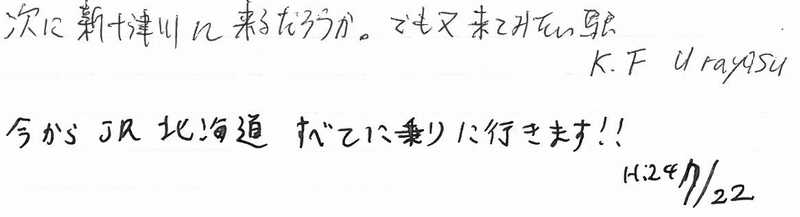 次に新十津川に来るだろうか。でも又来てみたい駅
K.F Urayasu
今からJR北海道 すべてに乗りに行きます!!
H.24 7/22